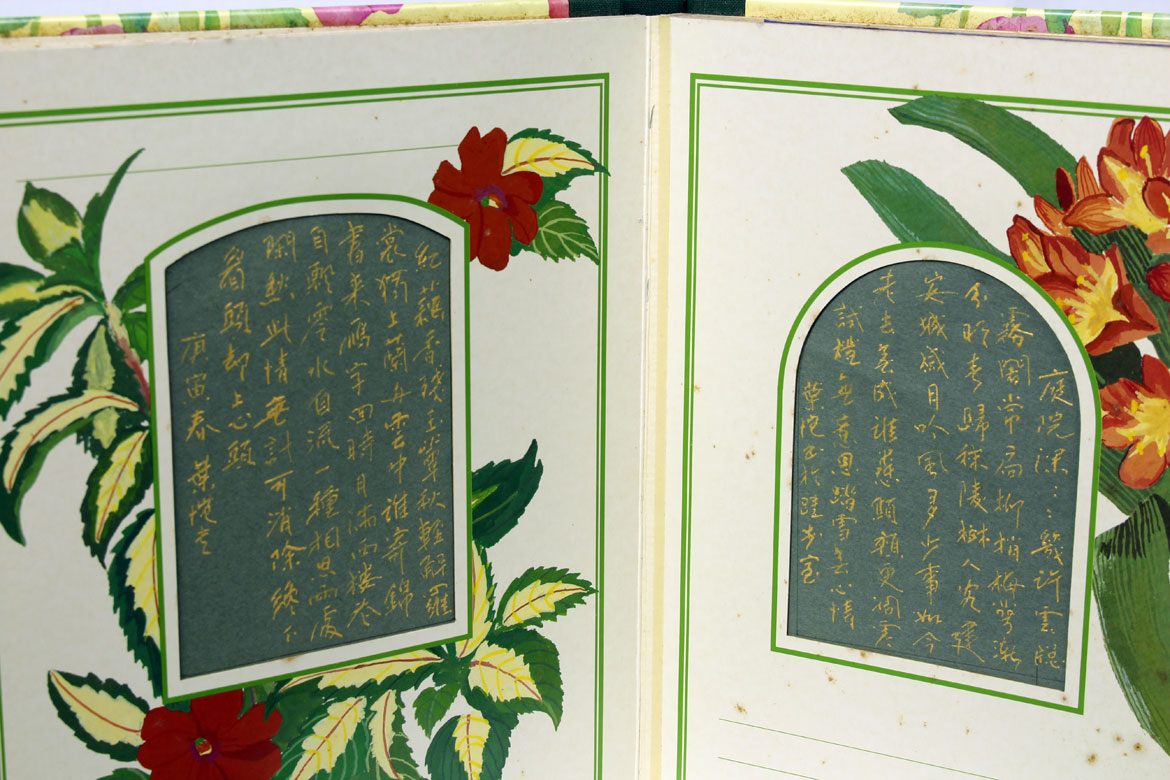 紅藕香殘玉簟秋輕解羅
裳獨上蘭舟雲中誰寄錦
書來鴈字回時月滿西樓花
自飄零水自流一種相思兩處
閑愁此情無計可消除終下
眉頭却上心頭
庚寅春 葉
庭院深〻〻幾許雲窗
霧閣常扃柳梢梅萼漸
分明春歸秣陵樹人客建
安城感月吟風多少事如今
老去無成誰憐顦顇更凋零
試燈無意思踏雪無心情
葉 書於 室